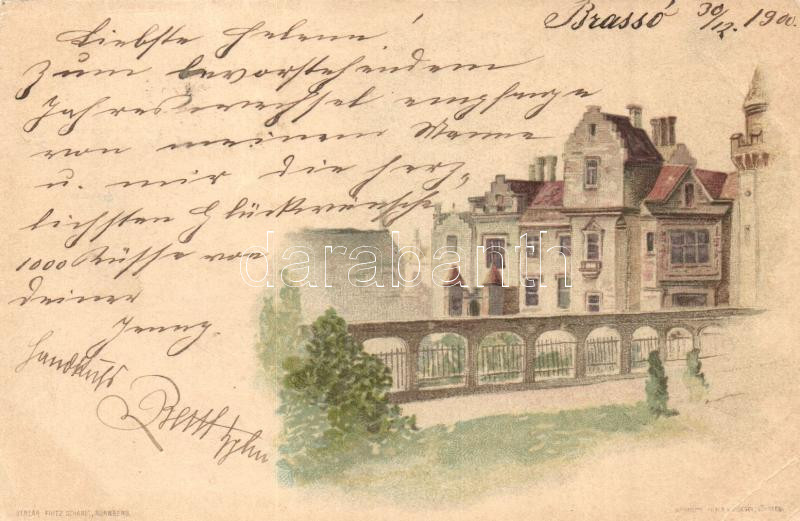 Brassó 30/12. 1900.
Liebste Helene!
Zum bevorstehendem
Jahreswechsel empfange
von meinem Manne
u. mir die herz-
lichsten Glückwünsche
1000 Küsse von
deiner
Jenny.
Handkuss
darabanth
VERLAG FRITZ SCHARDT, NÜRNBERG.